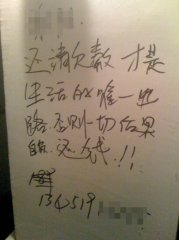 还清欠款才是
生活的唯一出
路.否则一切后果
自负.还钱!!!
134519